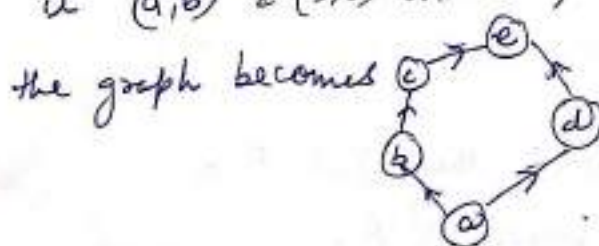 (a,b)
the graph becomes
e
c
d
b
a